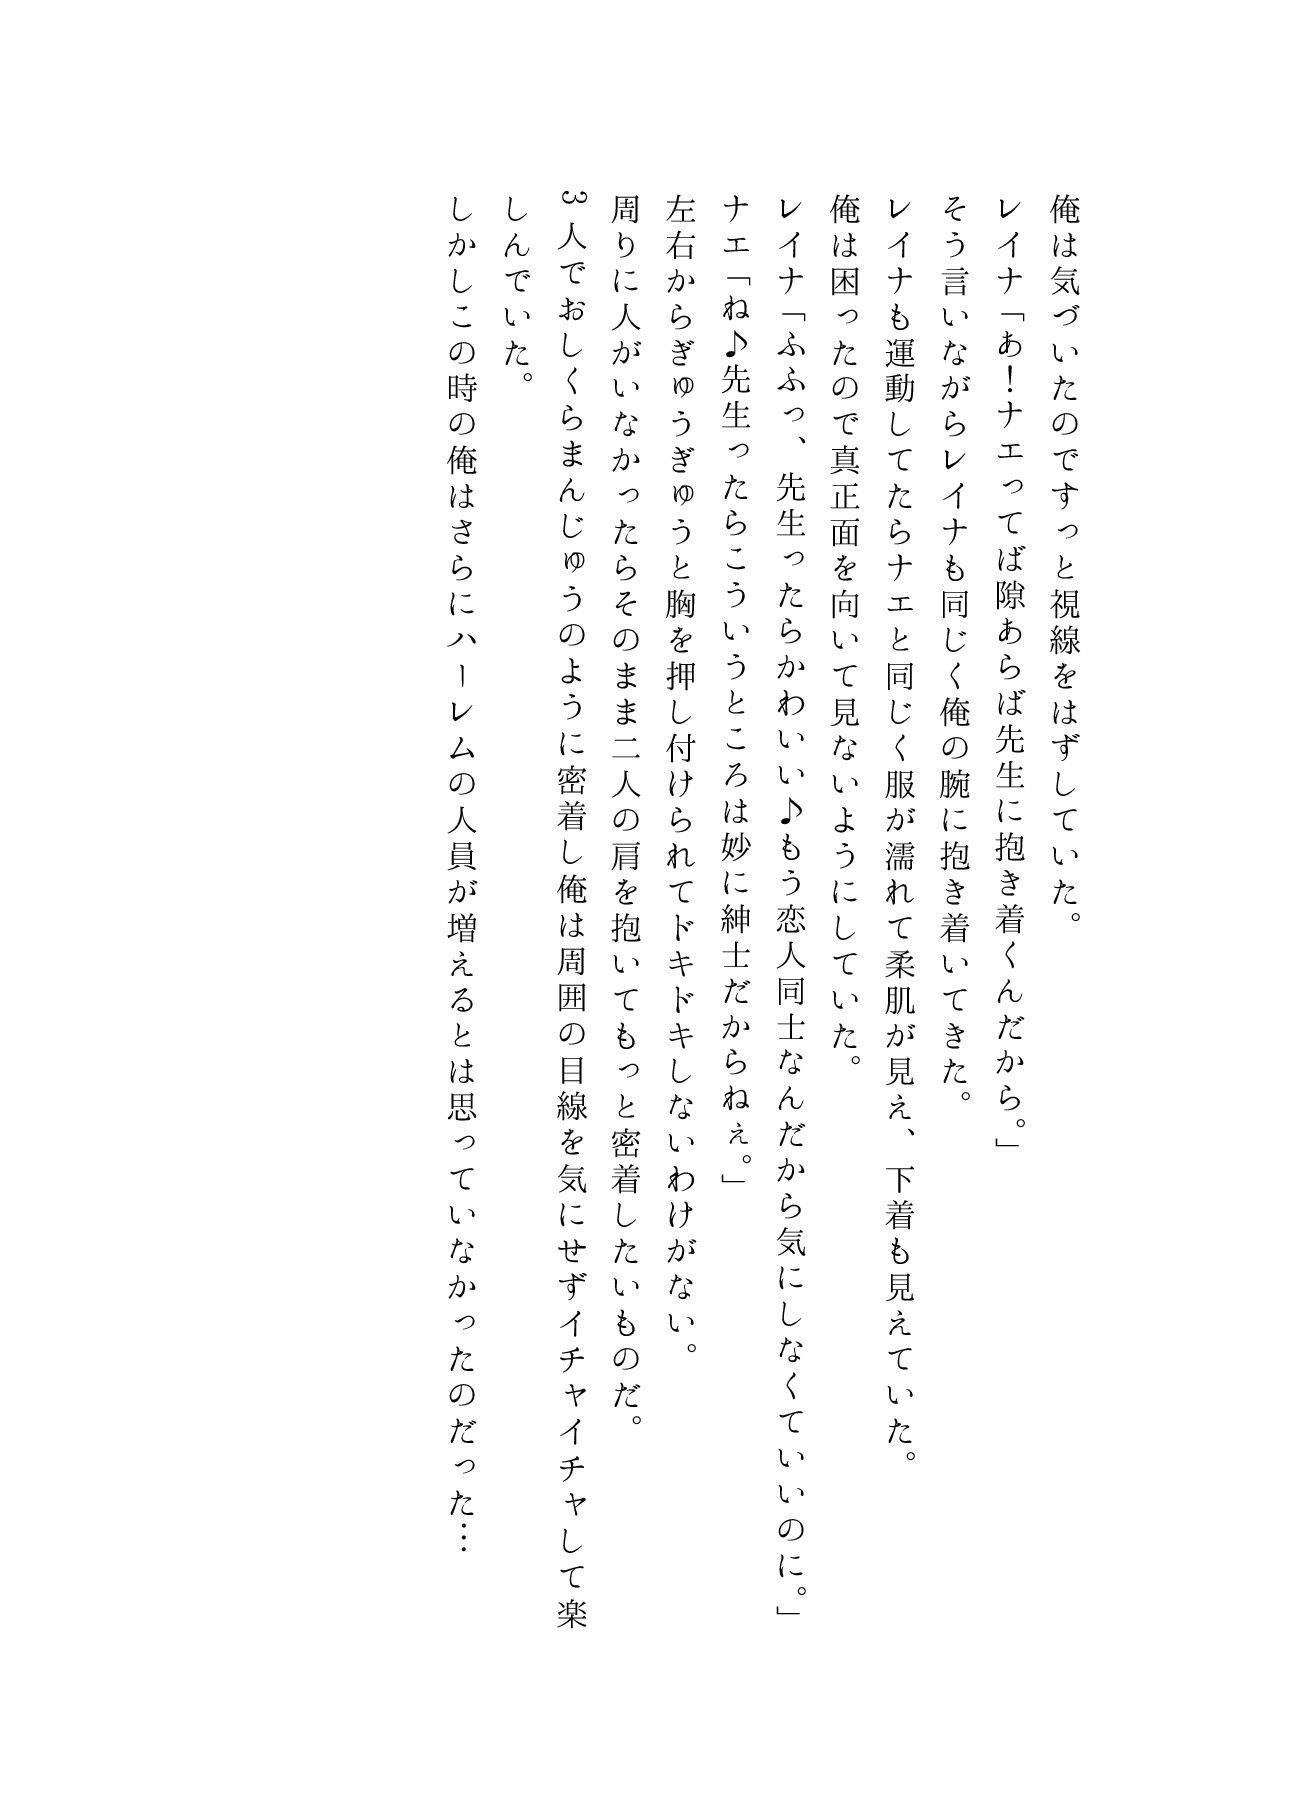 俺は気づいたのですっと視線をはずしていた。
レイナ「あ！ナエってば隙あらば先生に抱き着くんだから。」
そう言いながらレイナも同じく俺の腕に抱き着いてきた。
レイナも運動してたらナエと同じく服が濡れて柔肌が見え、下着も見えていた。
俺は困ったので真正面を向いて見ないようにしていた。
レイナ「ふふっ、先生ったらかわいい♪もう恋人同士なんだから気にしなくていいのに。」
ナエ「ね♪先生ったらこういうところは妙に紳士だからねぇ。」
左右からぎゅうぎゅうと胸を押し付けられてドキドキしないわけがない。
周りに人がいなかったらそのまま二人の肩を抱いてもっと密着したいものだ。
3人でおしくらまんじゅうのように密着し俺は周囲の目線を気にせずイチャイチャして楽
しんでいた。
しかしこの時の俺はさらにハーレムの人員が増えるとは思っていなかったのだった…